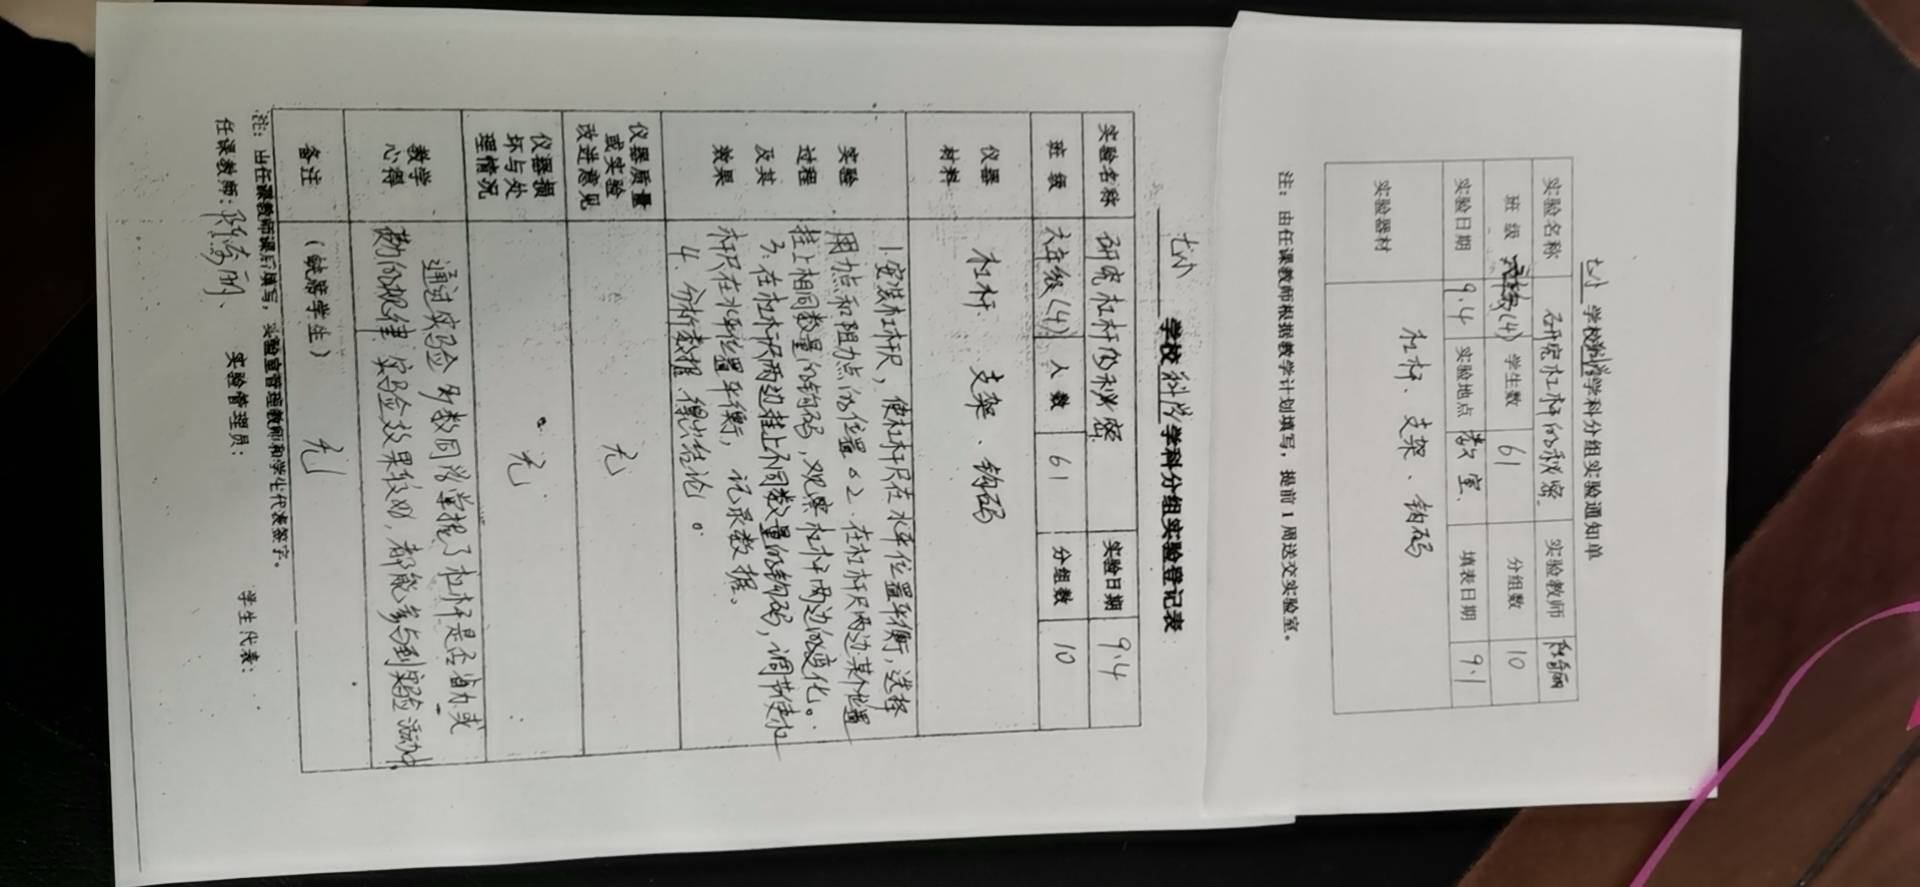 七小 学校科学学科分组实验通知单
实验名称 研究杠杆的秘密 实验教师
班 级 六年级(4) 学生数 61 分组数 10
实验日期 9.4 实验地点 教室. 填表日期 9.1
实验器材 杠杆、支架、钩码
注：由任课教师根据教学计划填写，提前1周送交实验室。
七小 学校科学学科分组实验登记表
实验名称 研究杠杆的秘密 实验日期 9.4
班 级 六年级(4) 人 数 61 分组数 10
仪器
材料
杠杆、支架、钩码
实验
过程
及其
效果
1.安装杠杆尺，使杠杆尺在水平位置平衡，选择
用力点和阻力点的位置。2.在杠杆尺两边某个位置
挂上相同数量的钩码，观察杠杆两边的变化。
3.在杠杆尺两边挂上不同数量的钩码，调节使杠
杆尺在水平位置平衡，记录数据。
4.分析数据，得出结论。
仪器质量
或实验
改进意见
无
仪器损
坏与处
理情况
无
教学
心得
通过实验 多数同学掌握了杠杆是否省力或
费力的规律，实验效果较好，都能参与到实验活动中。
备注 (缺席学生) 无
注：由任课教师课后填写，实验室管理教师和学生代表签字。
任课教师： 实验管理员： 学生代表：